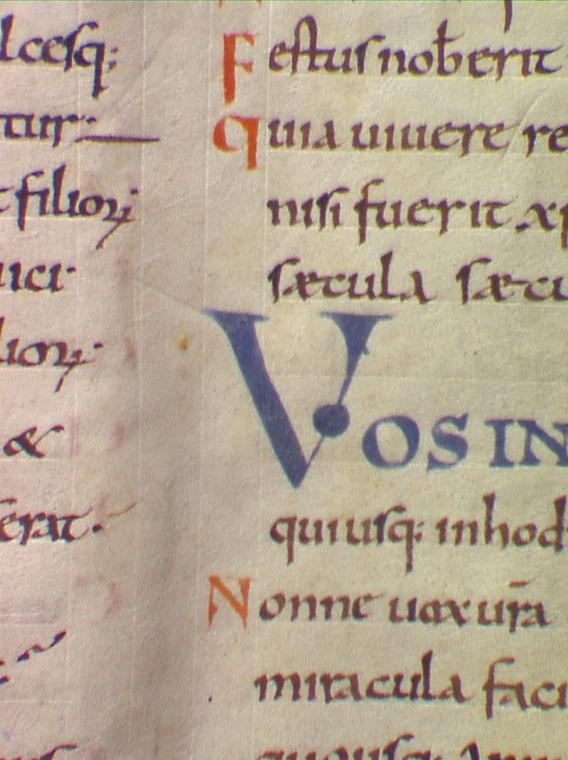 lcesq:
tur:
filiorꝝ
uici
liorꝝ
&
erat.
Festus nob̄ erit
Quia uiuere re
nisi fuerit xp
sæcula sæcu
VOS IN
quiusq: inhod
Nonne uox ur̄a
miracula faci